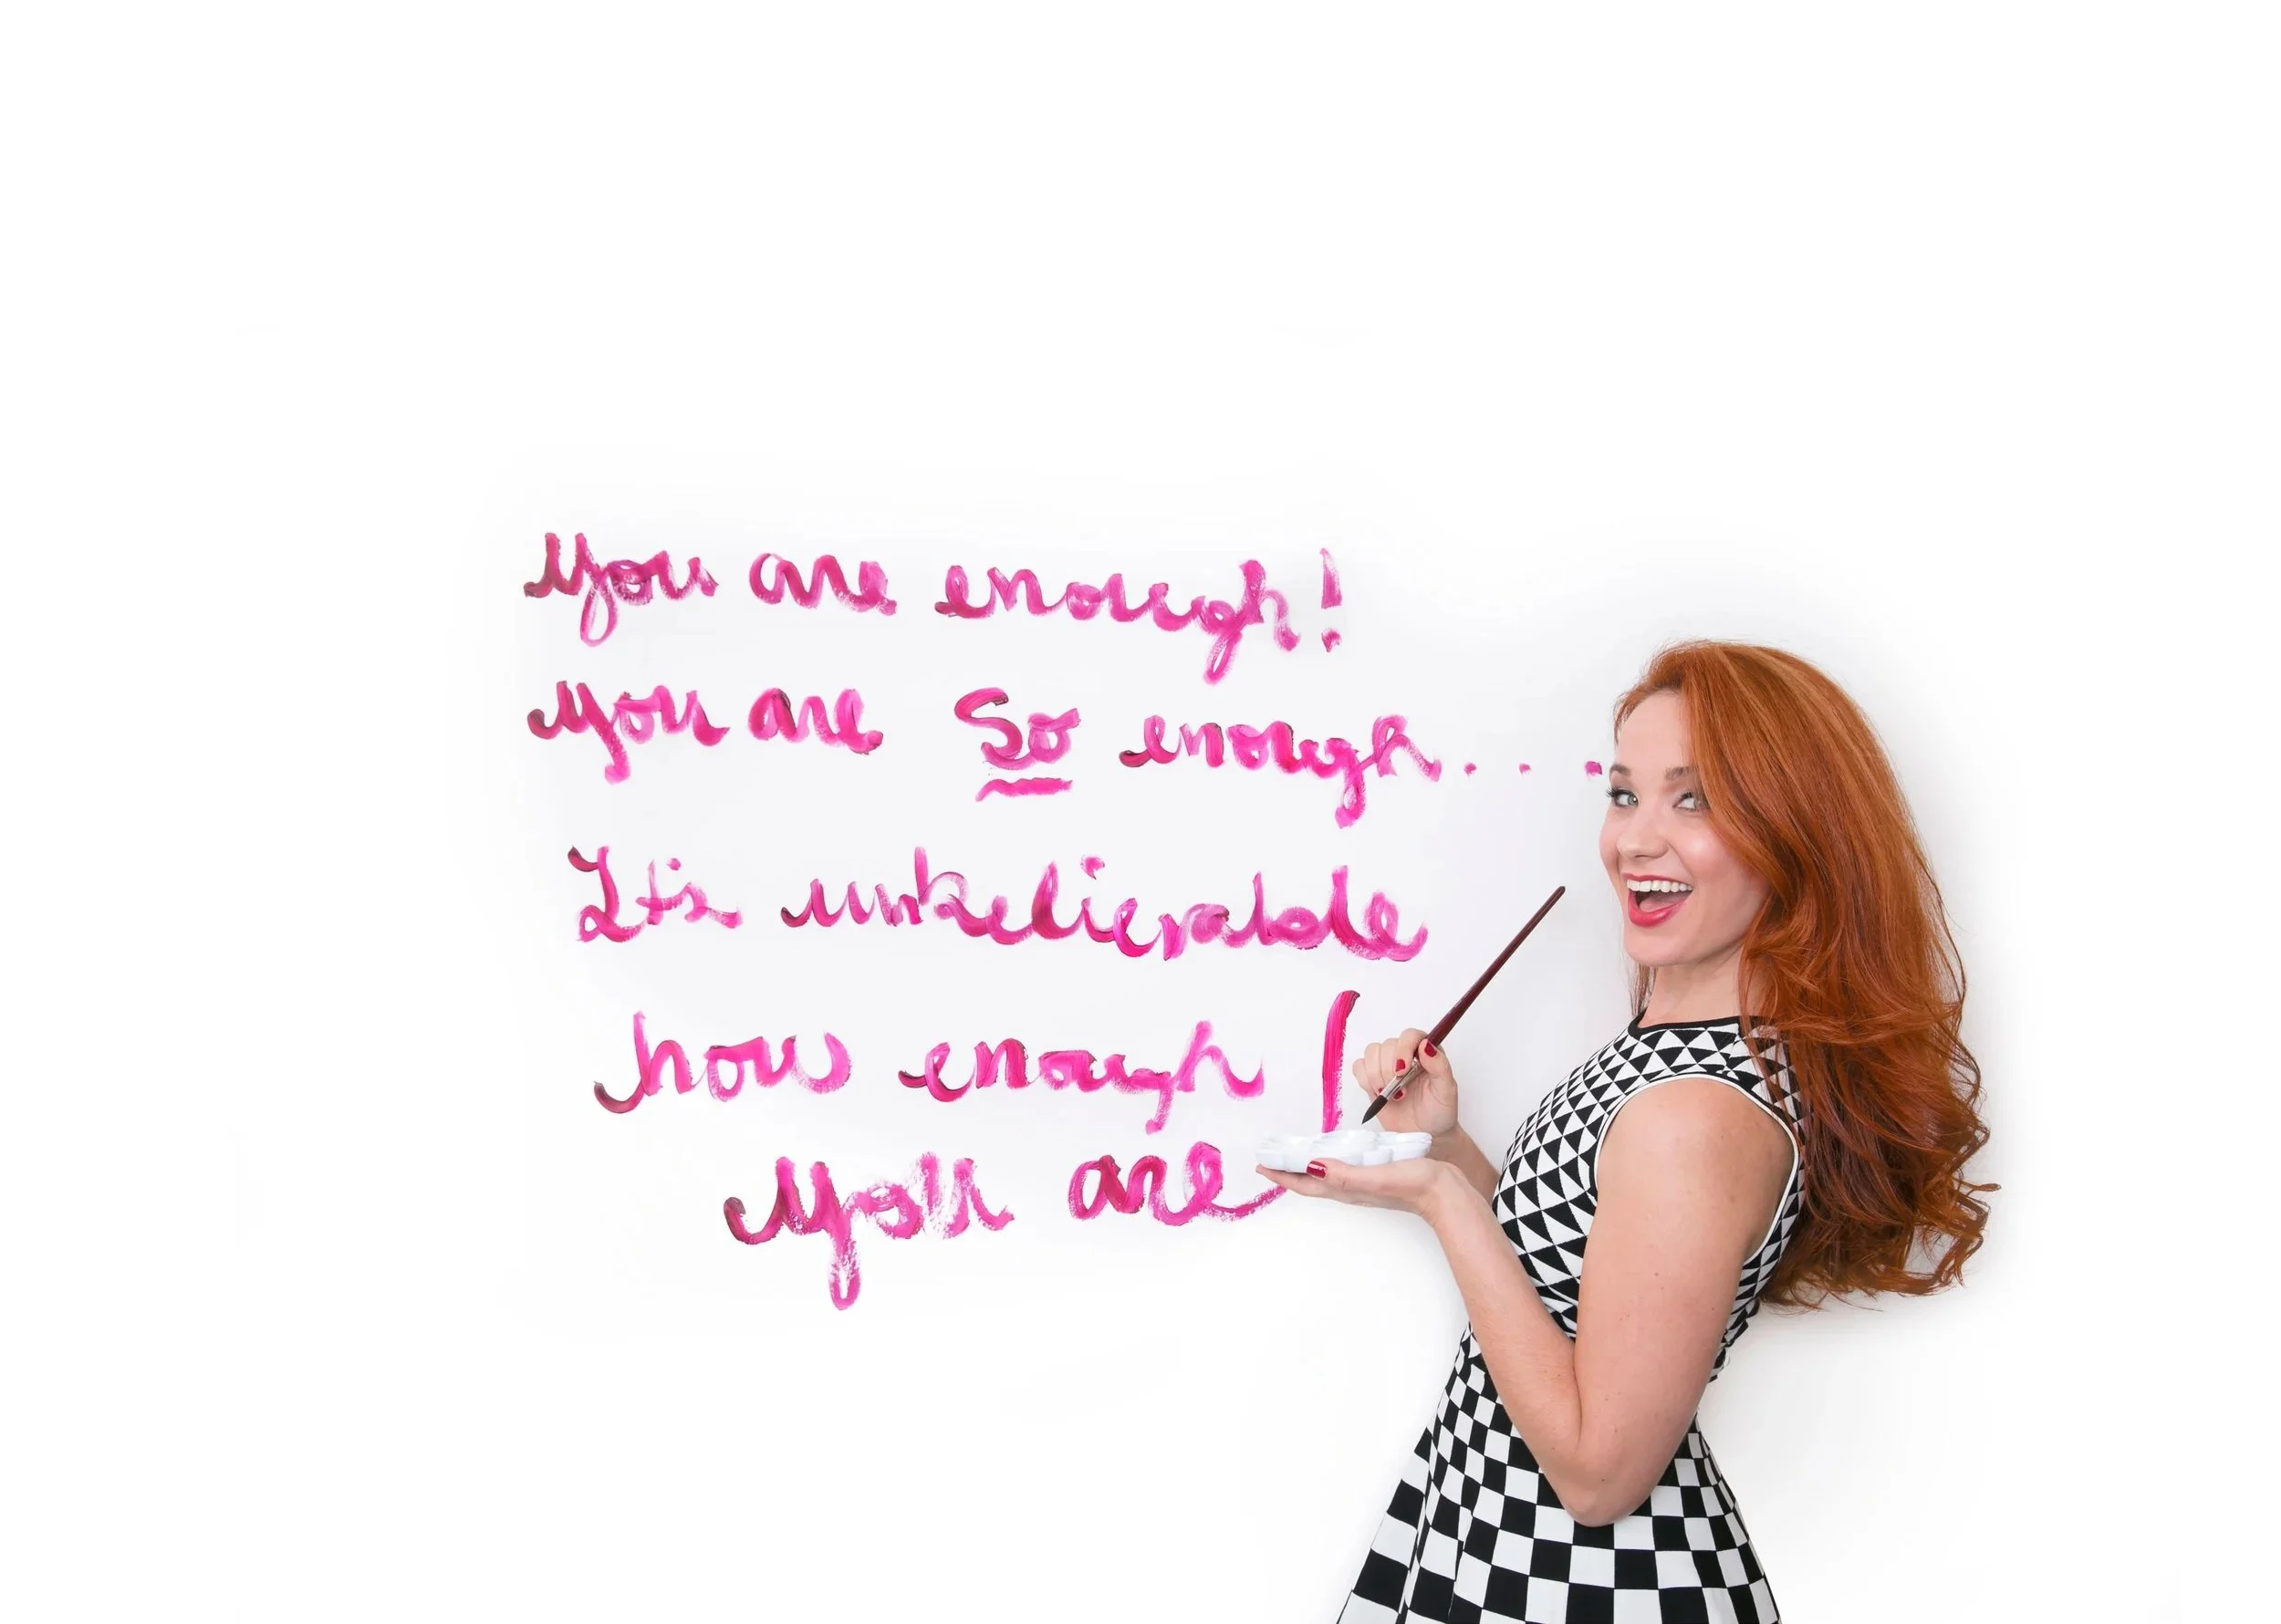 you are enough!
you are So enough...
It's unbelievable
how enough !
you are